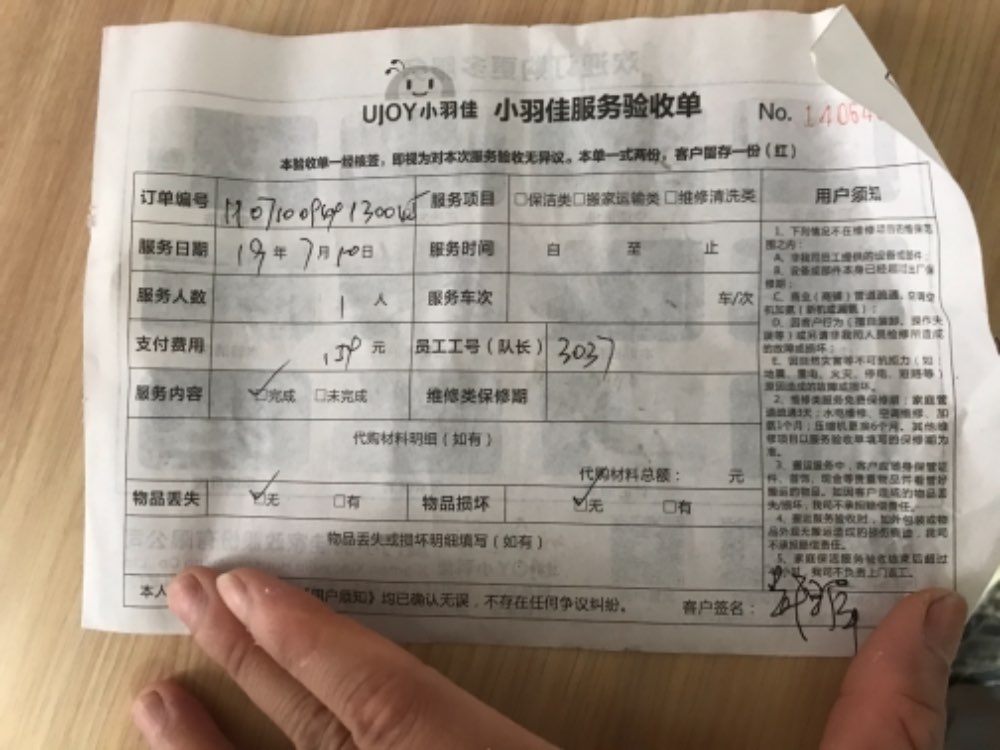 UJOY小羽佳 小羽佳服务验收单 No. 14064
本验收单一经核签，即视为对本次服务验收无异议。本单一式两份，客户留存一份（红）
订单编号 服务项目 □保洁类□搬家运输类 □维修清洗类 用户须知
服务日期 年 7月10日 服务时间 自 至 止
服务人数 1 人 服务车次 车/次
支付费用 元 员工工号（队长） 3037
服务内容 ☑完成 □未完成 维修类保修期
代购材料明细（如有）
代购材料总额： 元
物品丢失 ☑无 □有 物品损坏 ☑无 □有
物品丢失或损坏明细填写（如有）
本人 《用户须知》均已确认无误，不存在任何争议纠纷。 客户签名：
1、下列情况不在维修项目的维保范
围之内：
A、非我司员工提供的设备或部件；
B、设备或部件本身已经超过出厂保
修期；
C、商业（商铺）管道疏通、空调空
机加氨（新机或漏氨）；
D、因客户行为（擅自装卸、操作失
误等）或另请非我司人员检修所造成
的故障或损坏；
E、因自然灾害等不可抗拒力（如：
地震、雷电、火灾、停电、短路等）
原因造成的故障或损坏。
2、维修类服务免费保修期：家庭管
道疏通3天；水电维修、空调维修、加
氨1个月；压缩机更换6个月。其他维
修项目以服务验收单填写的保修期为
准。
3、搬运服务中，客户应随身保管证
件、首饰、现金等贵重物品并看管好
搬运的物品。如因客户造成的物品丢
失/损坏，我司不承担赔偿责任。
4、搬运服务验收时，如外包装或物
品外观无搬运造成的损伤痕迹，我司
不承担赔偿责任。
5、家庭保洁服务验收结束后超过
小时，我司不负责上门返工。